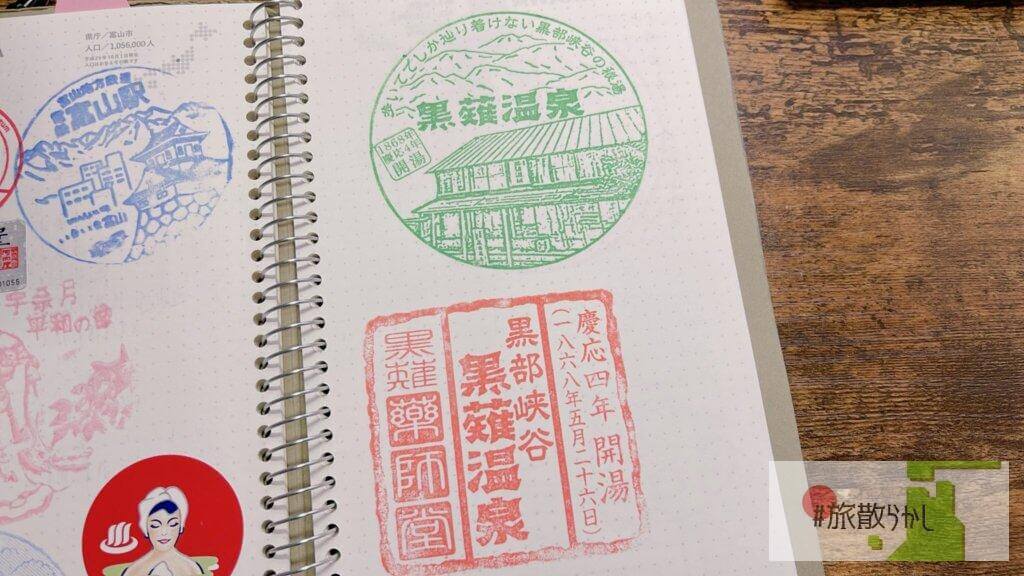 県庁/富山市
人口/1,056,000人
富山地方鉄道
富山駅
宇奈月
平和の像
歩いてでしか辿り着けない黒部峡谷の秘湯
黒薙温泉
1868年
慶応4年
開湯
慶応四年 開湯
(一八六八年五月二十六日)
黒部峡谷
黒薙温泉
黒薙
薬師堂
#旅散らかし